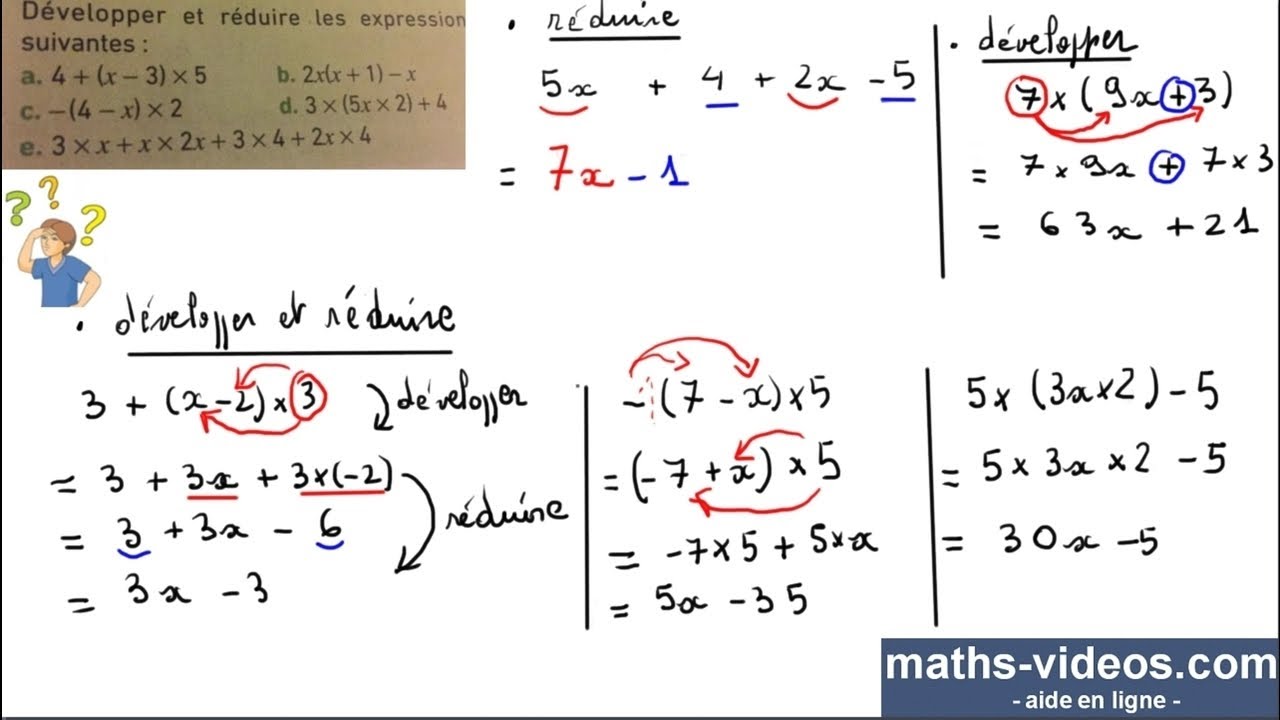 Développer et réduire les expression
suivantes :
a. 4 + (x − 3) × 5
b. 2x(x + 1) − x
c. −(4 − x) × 2
d. 3 × (5x × 2) + 4
e. 3 × x + x × 2x + 3 × 4 + 2x × 4
• réduire
5x + 4 + 2x - 5
= 7x - 1
• développer
7 × (9x + 3)
= 7 × 9x + 7 × 3
= 63x + 21
? ? ?
• développer et réduire
3 + (x - 2) × 3
développer
= 3 + 3x + 3×(-2)
= 3 + 3x - 6
réduire
= 3x - 3
- (7 - x) × 5
= (-7 + x) × 5
= -7 × 5 + 5 × x
= 5x - 35
5 × (3x × 2) - 5
= 5 × 3x × 2 - 5
= 30x - 5
maths-videos.com
- aide en ligne -